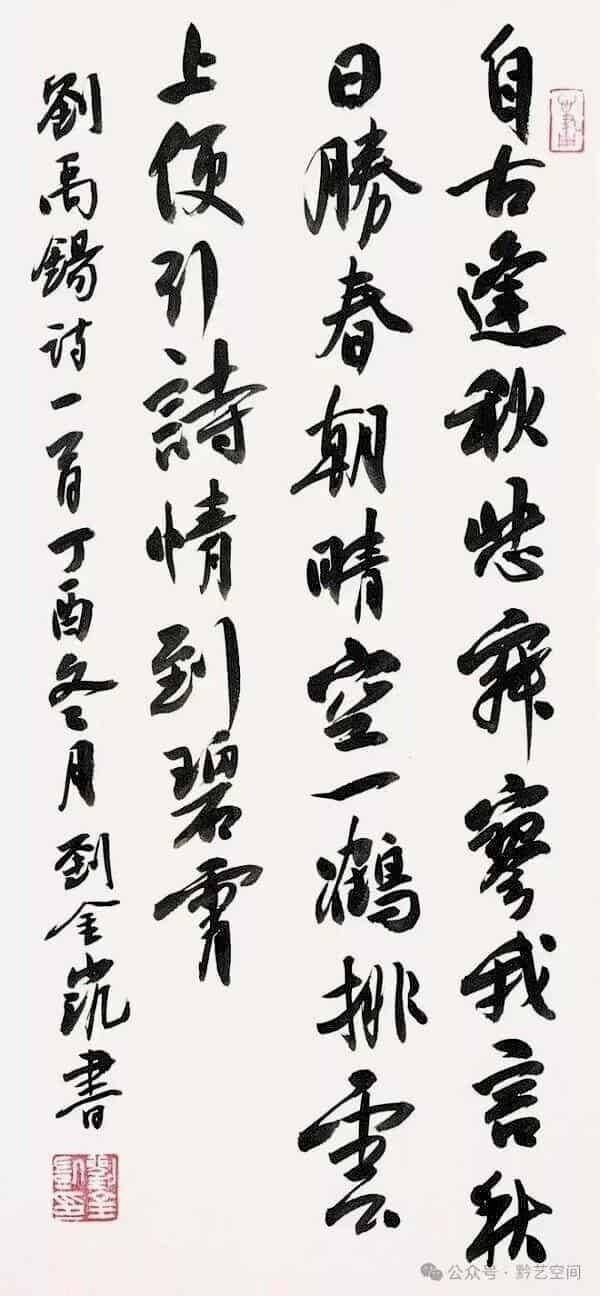 自古逢秋悲寂寥我言秋
日勝春朝晴空一鶴排雲
上便引詩情到碧霄
劉禹錫诗一首丁酉冬月劉金凯書
公众号·黔艺空间